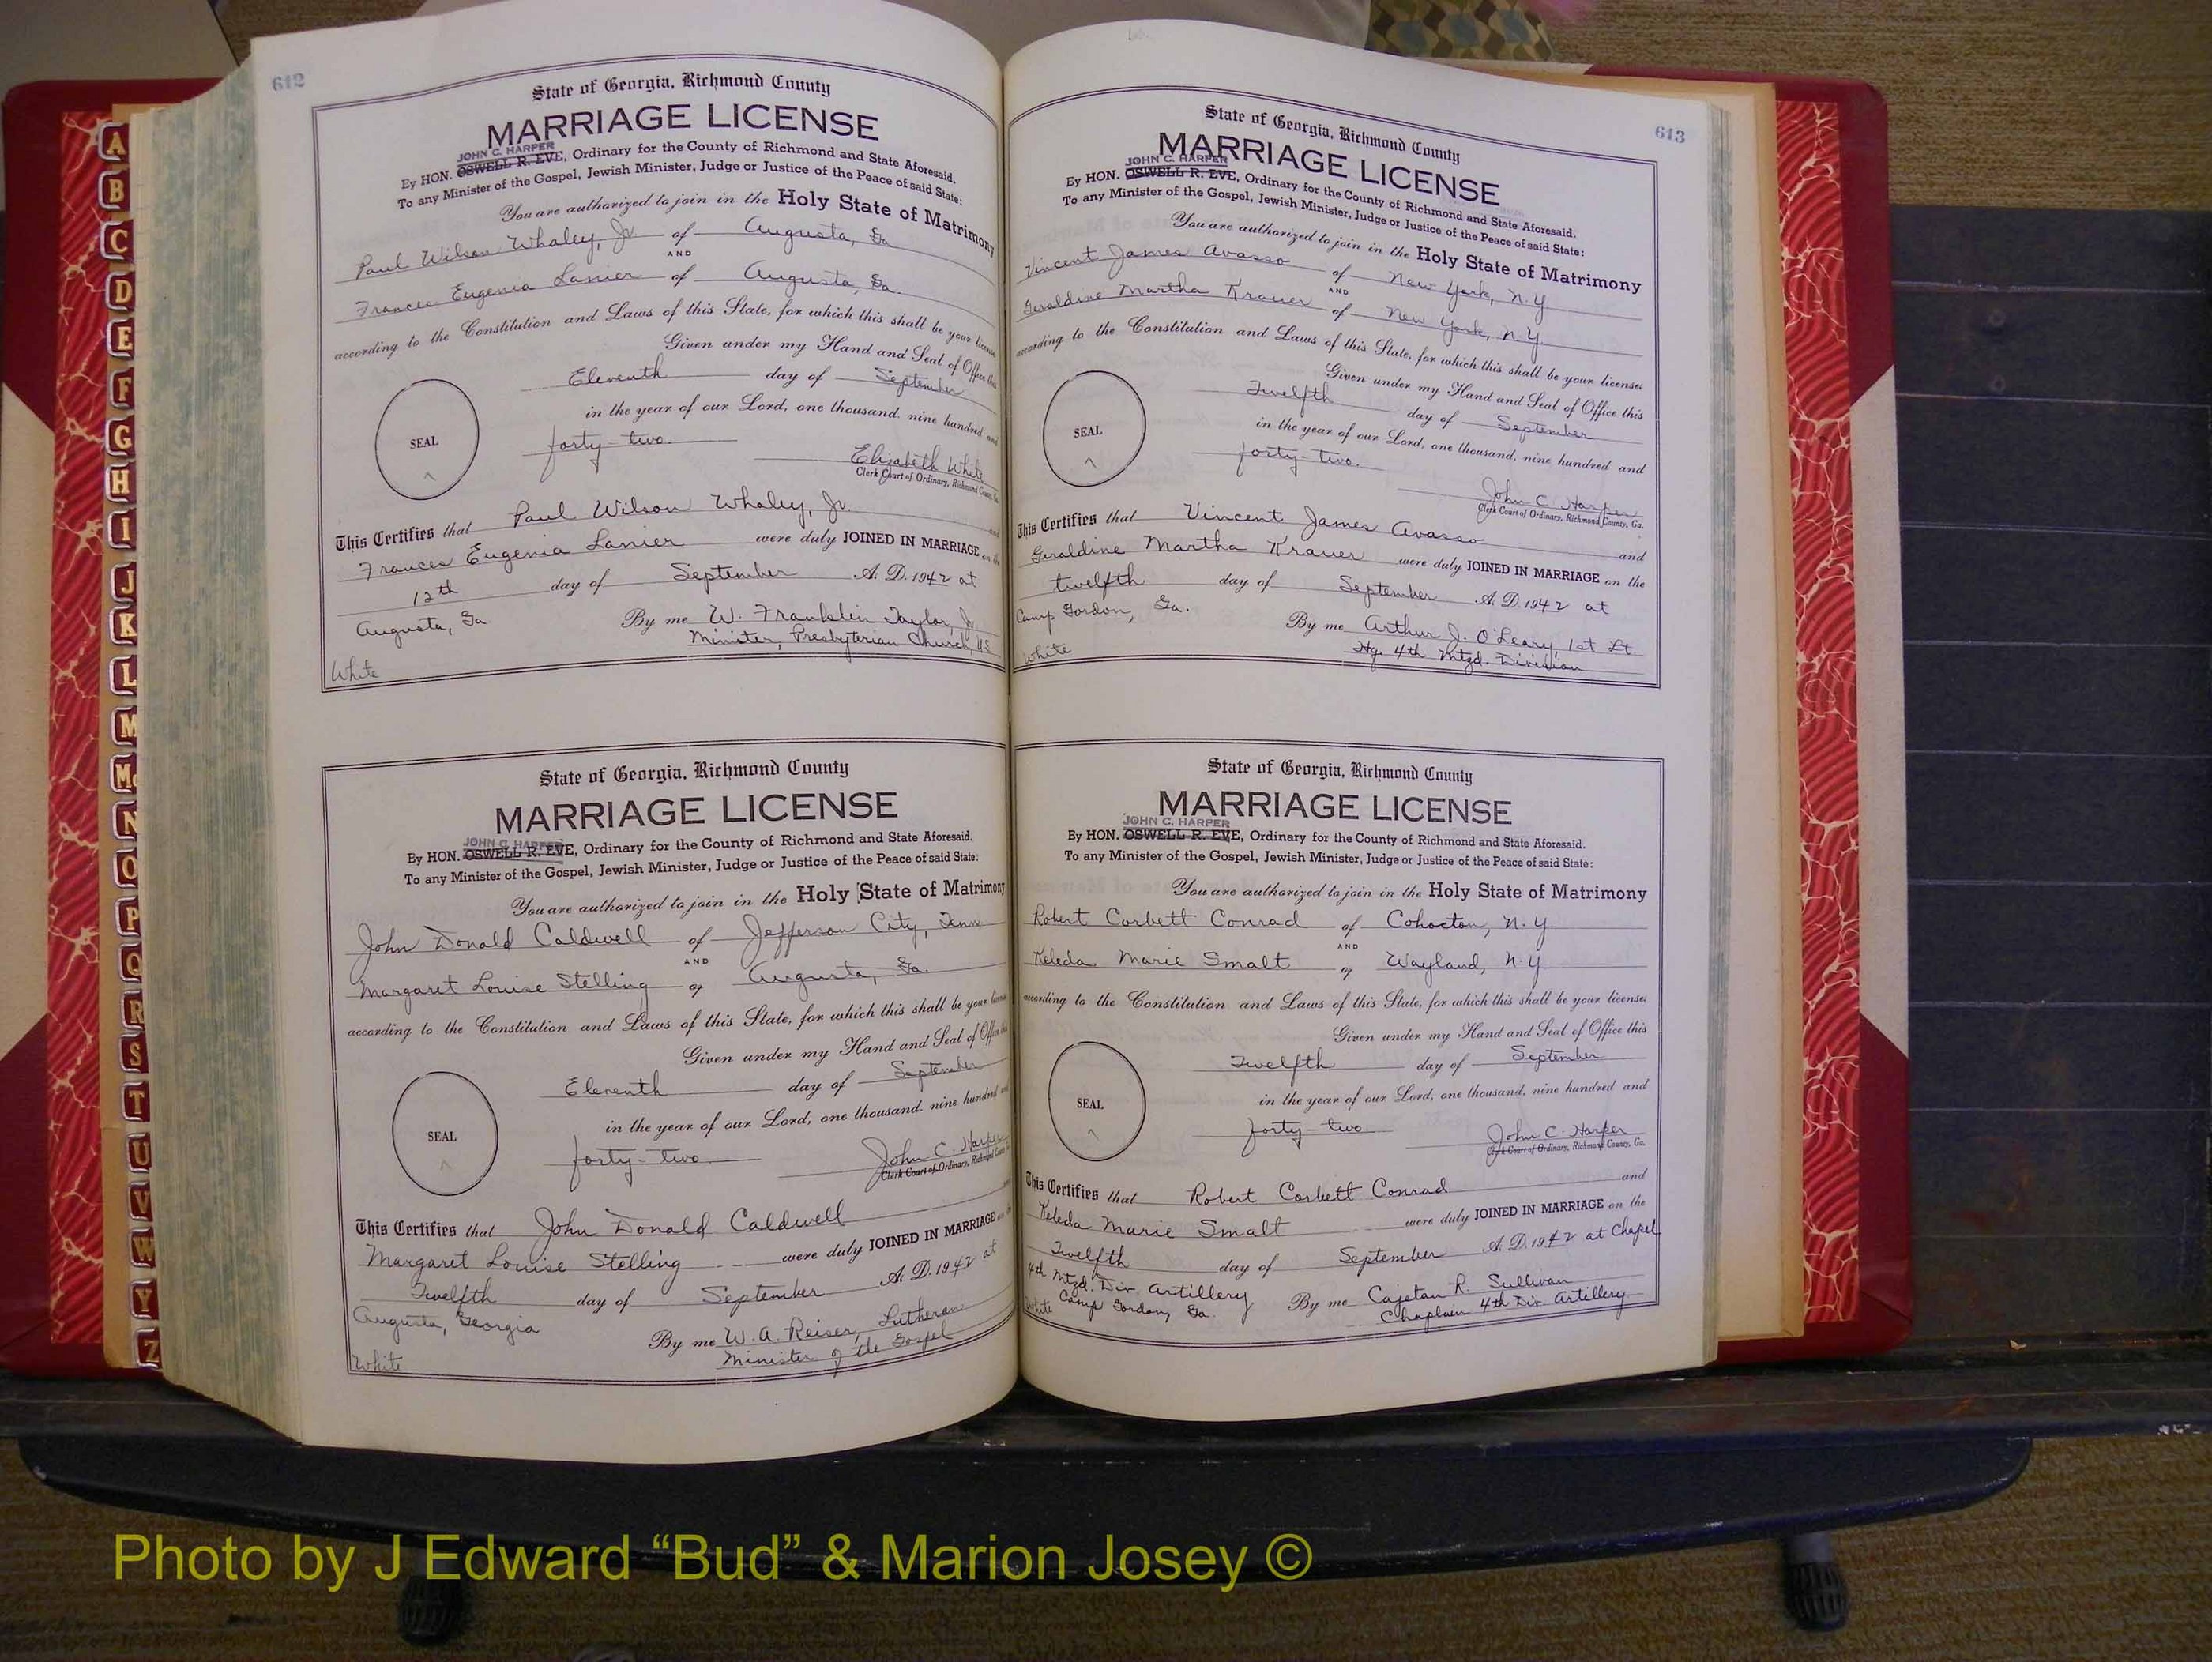 612
State of Georgia, Richmond County
MARRIAGE LICENSE
JOHN C. HARPER
By HON. OSWELL R. EVE, Ordinary for the County of Richmond and State Aforesaid.
To any Minister of the Gospel, Jewish Minister, Judge or Justice of the Peace of said State:
You are authorized to join in the Holy State of Matrimony
Paul Wilson Whaley, Jr of Augusta, Ga
AND
Frances Eugenia Lanier of Augusta, Ga.
according to the Constitution and Laws of this State, for which this shall be your license
Given under my Hand and Seal of Office this
Eleventh day of September
in the year of our Lord, one thousand, nine hundred and
SEAL
forty-two.
Elizabeth White
Clerk Court of Ordinary, Richmond County, Ga.
This Certifies that Paul Wilson Whaley, Jr. and
Frances Eugenia Lanier were duly JOINED IN MARRIAGE on the
12th day of September A. D. 1942 at
Augusta, Ga By me W. Franklin Taylor, Jr
Minister, Presbyterian Church, U.S.
White
State of Georgia, Richmond County
MARRIAGE LICENSE
JOHN C. HARPER
By HON. OSWELL R. EVE, Ordinary for the County of Richmond and State Aforesaid.
To any Minister of the Gospel, Jewish Minister, Judge or Justice of the Peace of said State:
You are authorized to join in the Holy State of Matrimony
John Donald Caldwell of Jefferson City, Tenn
AND
Margaret Louise Stelling of Augusta, Ga.
according to the Constitution and Laws of this State, for which this shall be your license
Given under my Hand and Seal of Office this
Eleventh day of September
in the year of our Lord, one thousand, nine hundred and
SEAL
forty-two
John C. Harper
Clerk Court of Ordinary, Richmond County
This Certifies that John Donald Caldwell
Margaret Louise Stelling were duly JOINED IN MARRIAGE on
Twelfth day of September A. D. 1942 at
Augusta, Georgia By me W. A. Reiser, Lutheran
Minister of the Gospel
White
613
State of Georgia, Richmond County
MARRIAGE LICENSE
JOHN C. HARPER
By HON. OSWELL R. EVE, Ordinary for the County of Richmond and State Aforesaid.
To any Minister of the Gospel, Jewish Minister, Judge or Justice of the Peace of said State:
You are authorized to join in the Holy State of Matrimony
Vincent James Avasso of New York, N.Y
AND
Geraldine Martha Krauer of New York, N.Y.
according to the Constitution and Laws of this State, for which this shall be your license
Given under my Hand and Seal of Office this
Twelfth day of September
in the year of our Lord, one thousand, nine hundred and
SEAL
forty-two.
John C. Harper
Clerk Court of Ordinary, Richmond County, Ga.
This Certifies that Vincent James Avasso and
Geraldine Martha Krauer were duly JOINED IN MARRIAGE on the
twelfth day of September A. D. 1942 at
Camp Gordon, Ga. By me Arthur J. O'Leary, 1st Lt
Hq. 4th Mtzd. Division
White
State of Georgia, Richmond County
MARRIAGE LICENSE
JOHN C. HARPER
By HON. OSWELL R. EVE, Ordinary for the County of Richmond and State Aforesaid.
To any Minister of the Gospel, Jewish Minister, Judge or Justice of the Peace of said State:
You are authorized to join in the Holy State of Matrimony
Robert Corbett Conrad of Cohocton, N.Y
AND
Keleda Marie Smalt of Wayland, N.Y
according to the Constitution and Laws of this State, for which this shall be your license
Given under my Hand and Seal of Office this
Twelfth day of September
in the year of our Lord, one thousand, nine hundred and
SEAL
forty-two
John C. Harper
Clerk Court of Ordinary, Richmond County, Ga.
This Certifies that Robert Corbett Conrad and
Keleda Marie Smalt were duly JOINED IN MARRIAGE on the
Twelfth day of September A. D. 1942 at Chapel
4th Mtzd. Div. Artillery
Camp Gordon, Ga. By me Cajetan R. Sullivan
Chaplain 4th Div. Artillery
White
A
B
C
D
E
F
G
H
I
J
K
L
M
Mc
N
O
P
Q
R
S
T
U
V
W
Y
Z
Photo by J Edward “Bud” & Marion Josey ©